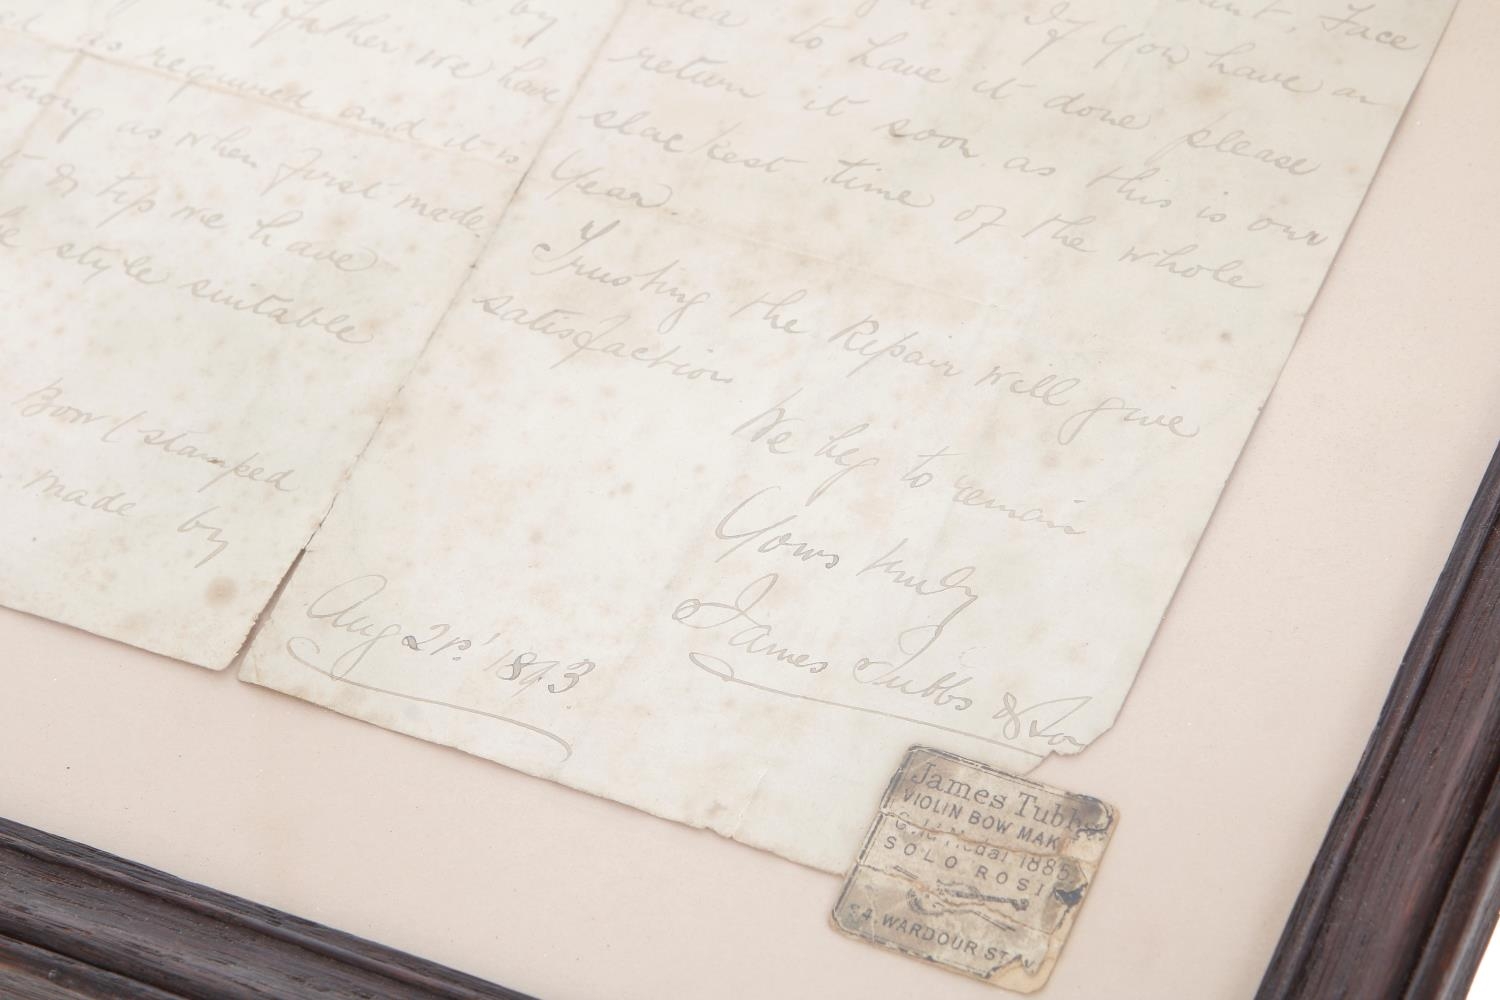 by
father we have
as required and it is
strong as when first made.
& tip we have
style suitable
Bow (stamped
made by
Face
If you have an
idea to have it done please
return it soon as this is our
slackest time of the whole
Year.
Trusting the Repair will give
satisfaction
We beg to remain
Yours truly
James Tubbs & Son
Aug 21st 1893
James Tubbs
VIOLIN BOW MAK
Gold Medal 1885
SOLO ROSI
94. WARDOUR ST. W